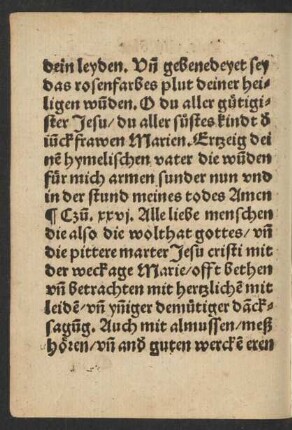 dein leyden. Vñ gebenedeyet sey
das rosenfarbes plut deiner hei-
ligen wũden. O du aller gütigi-
ster Jesu/ du aller süstes kindt d̕
iũckfrawen Marien. Ertzeig dei
nem hymelischen vater die wũden
für mich armen sunder nun vnd
in der stund meines todes Amen
¶ Czũ. xxvj. Alle liebe menschen
die also die wolthat gottes/ vñ
die pittere marter Jesu cristi mit
der weckage Marie/ offt bethen
vñ betrachten mit hertzlichẽ mit
leidẽ/ vñ yñiger demütiger dãck-
sagũg. Auch mit almussen/ meß
hören/ vñ and̕ guten werckẽ eren